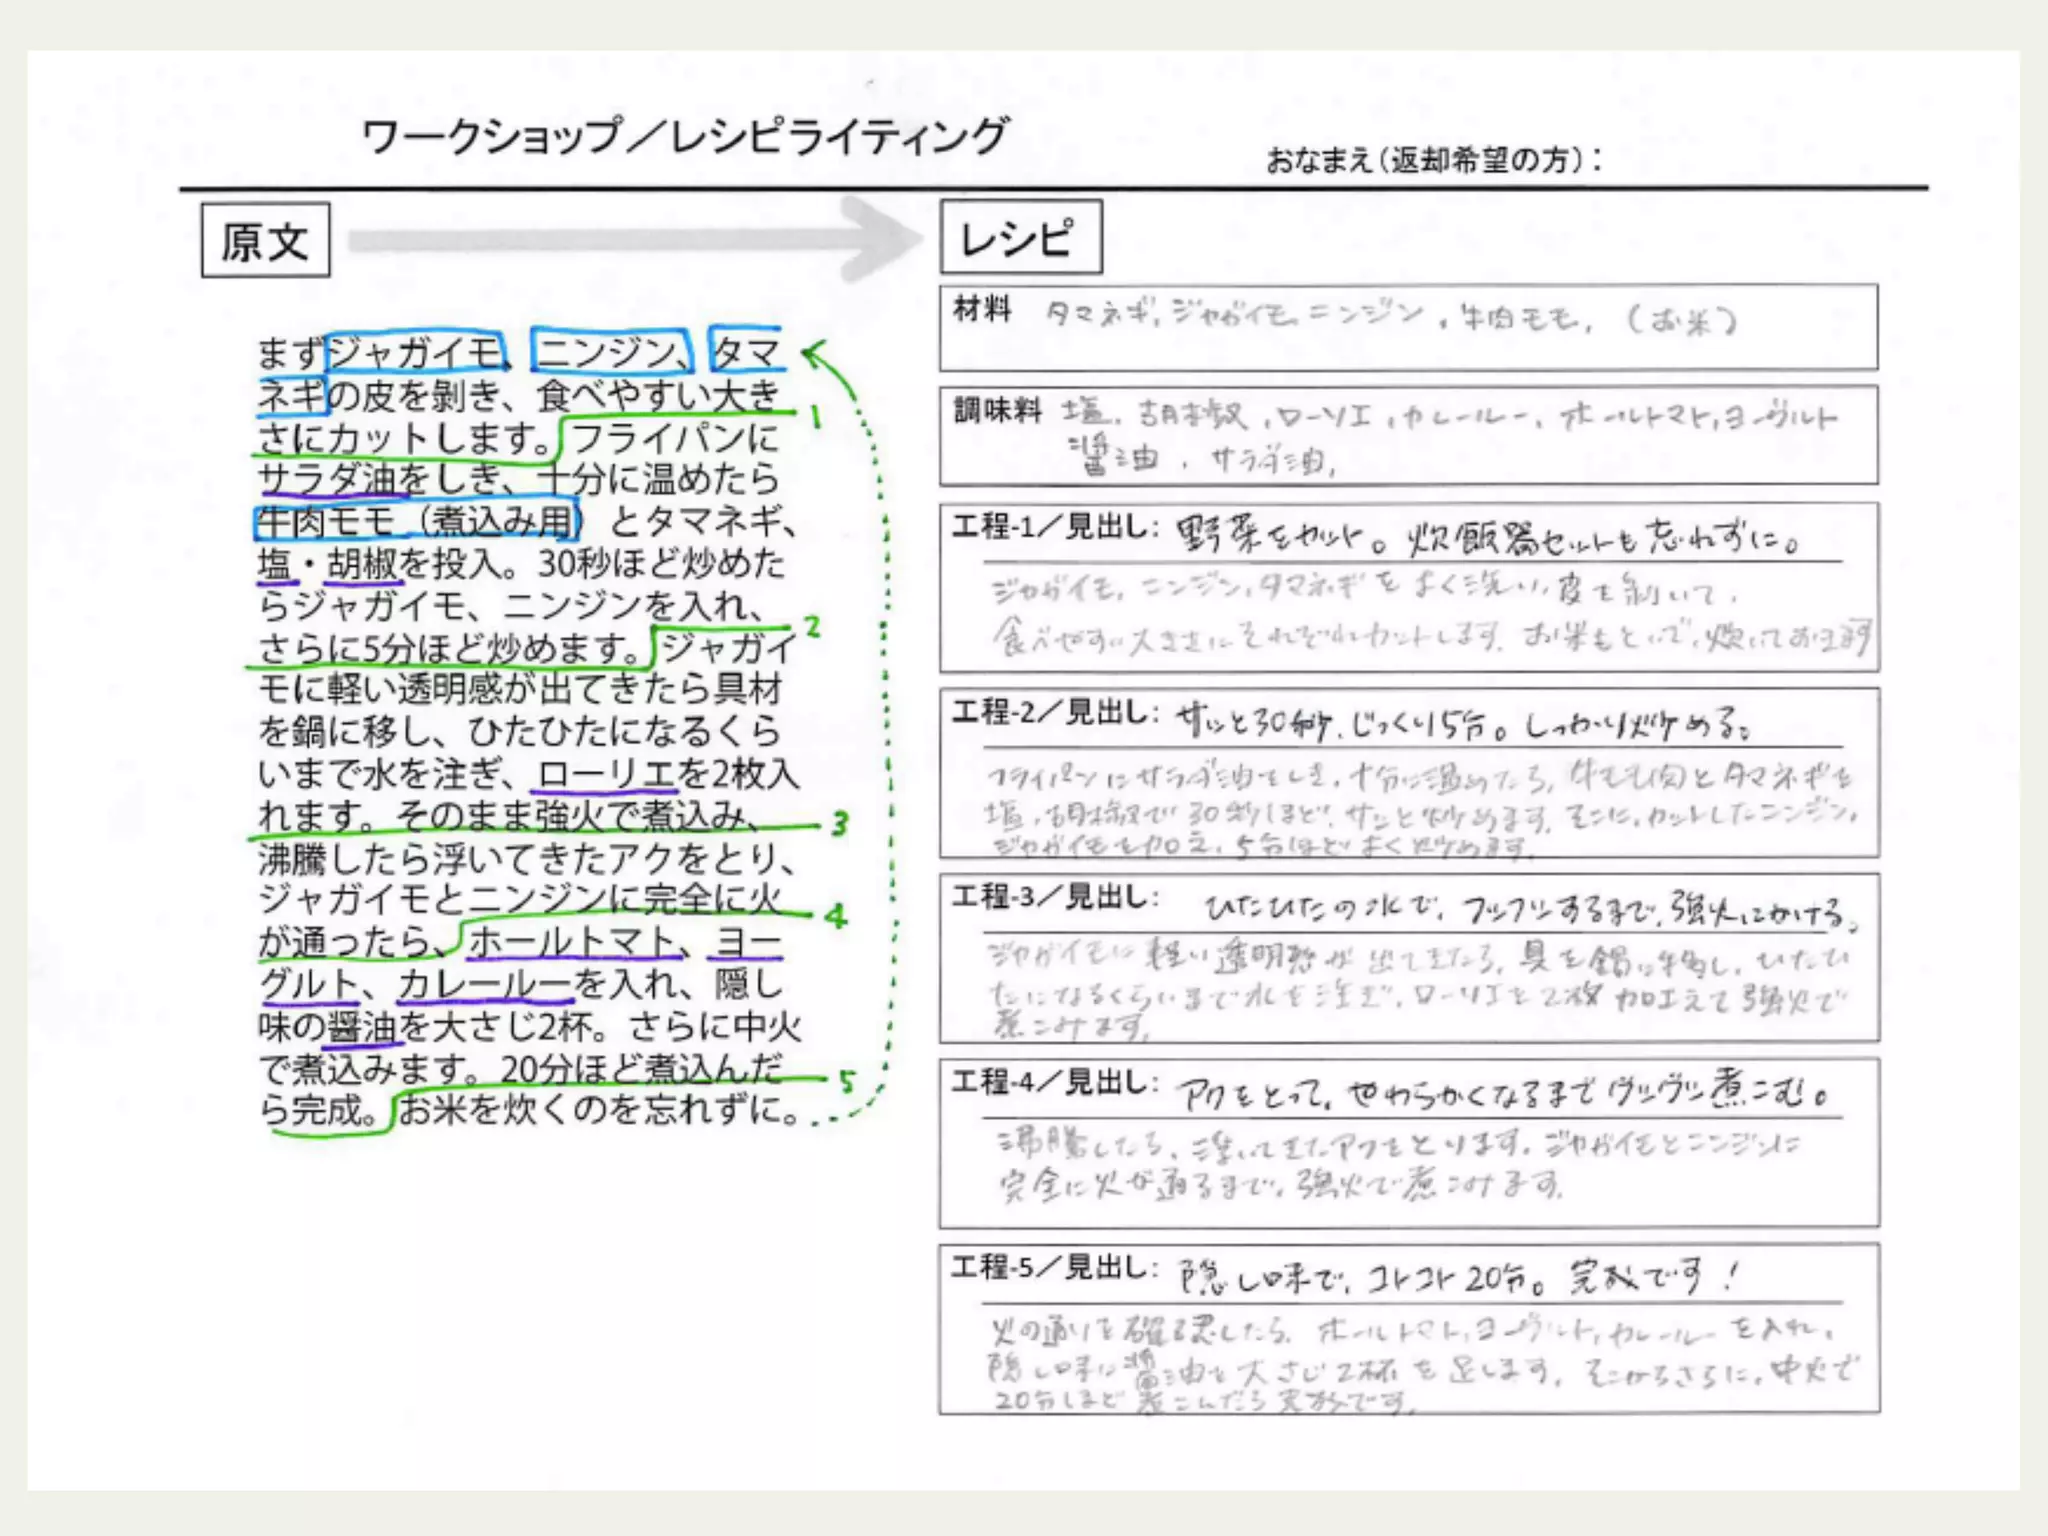 ワークショップ／レシピライティング
おなまえ（返却希望の方）：
原文
まずジャガイモ、ニンジン、タマ
ネギの皮を剝き、食べやすい大き
さにカットします。フライパンに
サラダ油をしき、十分に温めたら
牛肉モモ（煮込み用）とタマネギ、
塩・胡椒を投入。30秒ほど炒めた
らジャガイモ、ニンジンを入れ、
さらに5分ほど炒めます。ジャガイ
モに軽い透明感が出てきたら具材
を鍋に移し、ひたひたになるくら
いまで水を注ぎ、ローリエを2枚入
れます。そのまま強火で煮込み、
沸騰したら浮いてきたアクをとり、
ジャガイモとニンジンに完全に火
が通ったら、ホールトマト、ヨー
グルト、カレールーを入れ、隠し
味の醤油を大さじ2杯。さらに中火
で煮込みます。20分ほど煮込んだ
ら完成。お米を炊くのを忘れずに。
1
2
3
4
5
レシピ
材料 タマネギ、ジャガイモ、ニンジン、牛肉モモ、（お米）
調味料 塩、胡椒、ローリエ、カレールー、ホールトマト、ヨーグルト
醤油、サラダ油、
工程-1／見出し： 野菜をカット。炊飯器セットも忘れずに。
ジャガイモ、ニンジン、タマネギをよく洗い、皮を剝いて、
食べやすい大きさにそれぞれカットします。お米もといで、炊いておきます
工程-2／見出し： サッと30秒、じっくり5分。しっかり炒める。
フライパンにサラダ油をしき、十分に温めたら、牛モモ肉とタマネギを
塩、胡椒で30秒ほど、サッと炒めます。そこに、カットしたニンジン、
ジャガイモを加え、5分ほどよく炒めます。
工程-3／見出し： ひたひたの水で、フツフツするまで、強火にかける。
ジャガイモに軽い透明感が出てきたら、具を鍋に移し、ひたひ
たになるくらいまで水を注ぎ、ローリエを2枚加えて強火で
煮こみます。
工程-4／見出し： アクをとって、やわらかくなるまでグツグツ煮こむ。
沸騰したら、浮いてきたアクをとります。ジャガイモとニンジンに
完全に火が通るまで、強火で煮こみます。
工程-5／見出し： 隠し味で、コトコト20分。完成です！
火の通りを確認したら、ホールトマト、ヨーグルト、カレールーを入れ、
隠し味に醤油を大さじ2杯を足します。そこからさらに、中火で
20分ほど煮こんだら完成です。